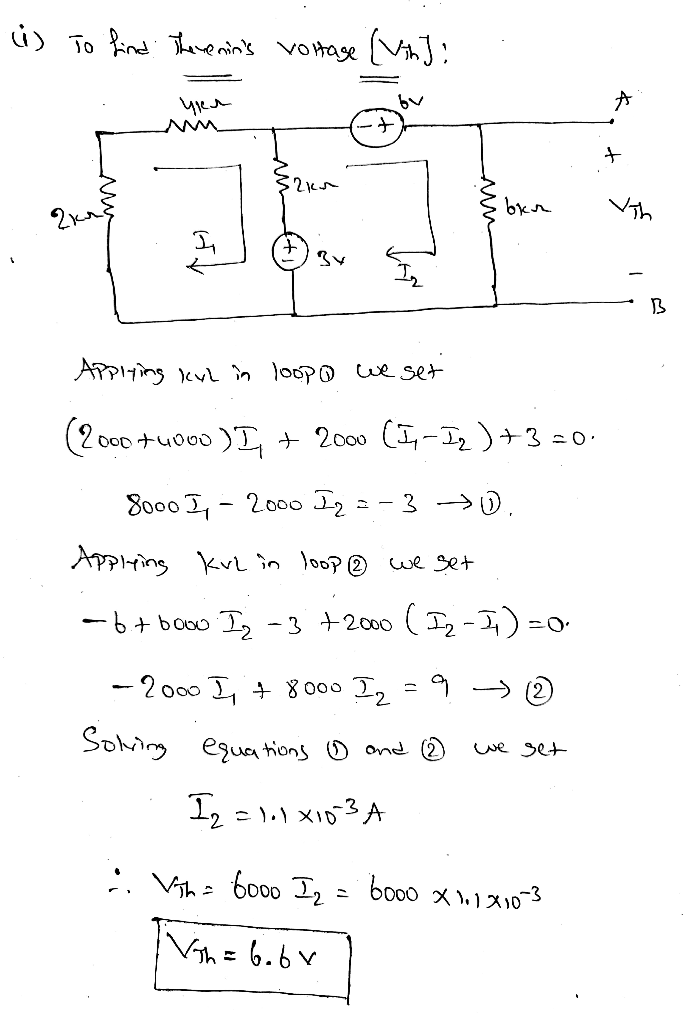 (i) To find Thevenin's voltage [VTh]:
4kΩ
6V
A
- +
+
2kΩ
2kΩ
6kΩ
VTh
I1
+
-
3V
I2
-
B
Applying kvl in loop ① we get
(2000+4000)I1 + 2000 (I1-I2)+3=0.
8000 I1 - 2000 I2 = -3 → ①.
Applying KVL in loop ② we get
-6+6000 I2 -3 +2000 (I2-I1)=0.
-2000 I1 + 8000 I2 = 9 → ②
Solving equations ① and ② we get
I2 = 1.1 x10⁻³ A
∴ VTh = 6000 I2 = 6000 x1.1x10⁻³
VTh = 6.6 V